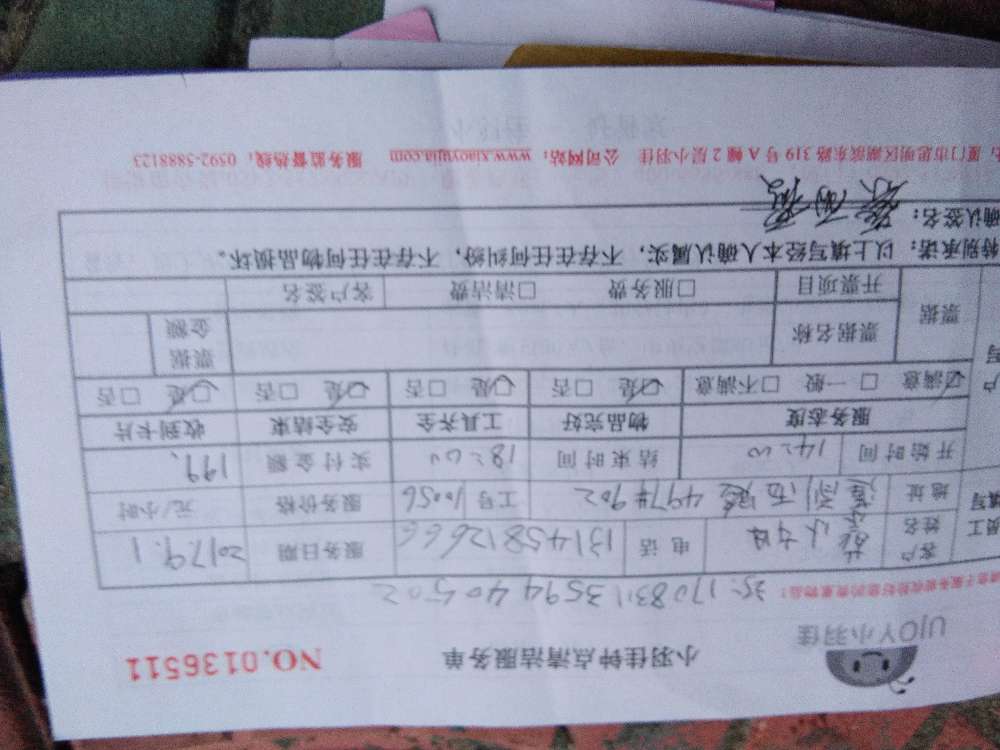 UJOY小羽佳
小羽佳钟点清洁服务单 NO.0136511
请在服务前收好您的贵重物品!
客户姓名 女士 电话 13145812666 服务日期 2017.9.1
地址 497#902 工号 10056 服务价格 元/小时
开始时间 14:00 结束时间 18:00 实付金额 199.
服务态度 物品完好 工具齐全 安全结束 收到卡片
☑满意 □一般 □不满意 ☑是 □否 ☑是 □否 ☑是 □否 ☑是 □否
票据 票据名称 票据金额
开票项目 □服务费 □清洁费 客户签名
特别承诺:以上填写经本人确认属实,不存在任何纠纷,不存在任何物品损坏。
确认签名:
厦门市思明区湖滨东路 319 号 A 幢 2 层小羽佳 公司网站:www.xiaoyujia.com 服务监督热线:0592-5888123